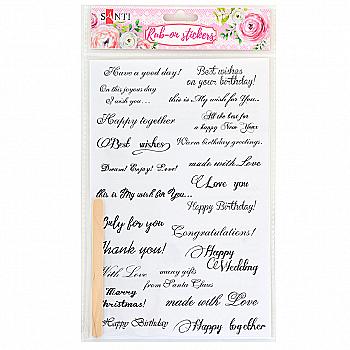 SANTI
Rub-on stickers
Have a good day!
Best wishes
on your birthday!
On this joyous day
I wish you...
this is My wish for You...
Happy together
All the best for
a happy New Year
Best wishes
Warm birthday greetings.
Dream! Enjoy! Love!
made with Love
I Love you
this is My wish for You...
Happy Birthday!
July for you
Congratulations!
Thank you!
Happy
Wedding
With Love
many gifts
from Santa Claus
Marry
Christmas!
made with Love
Happy Birthday
Happy together